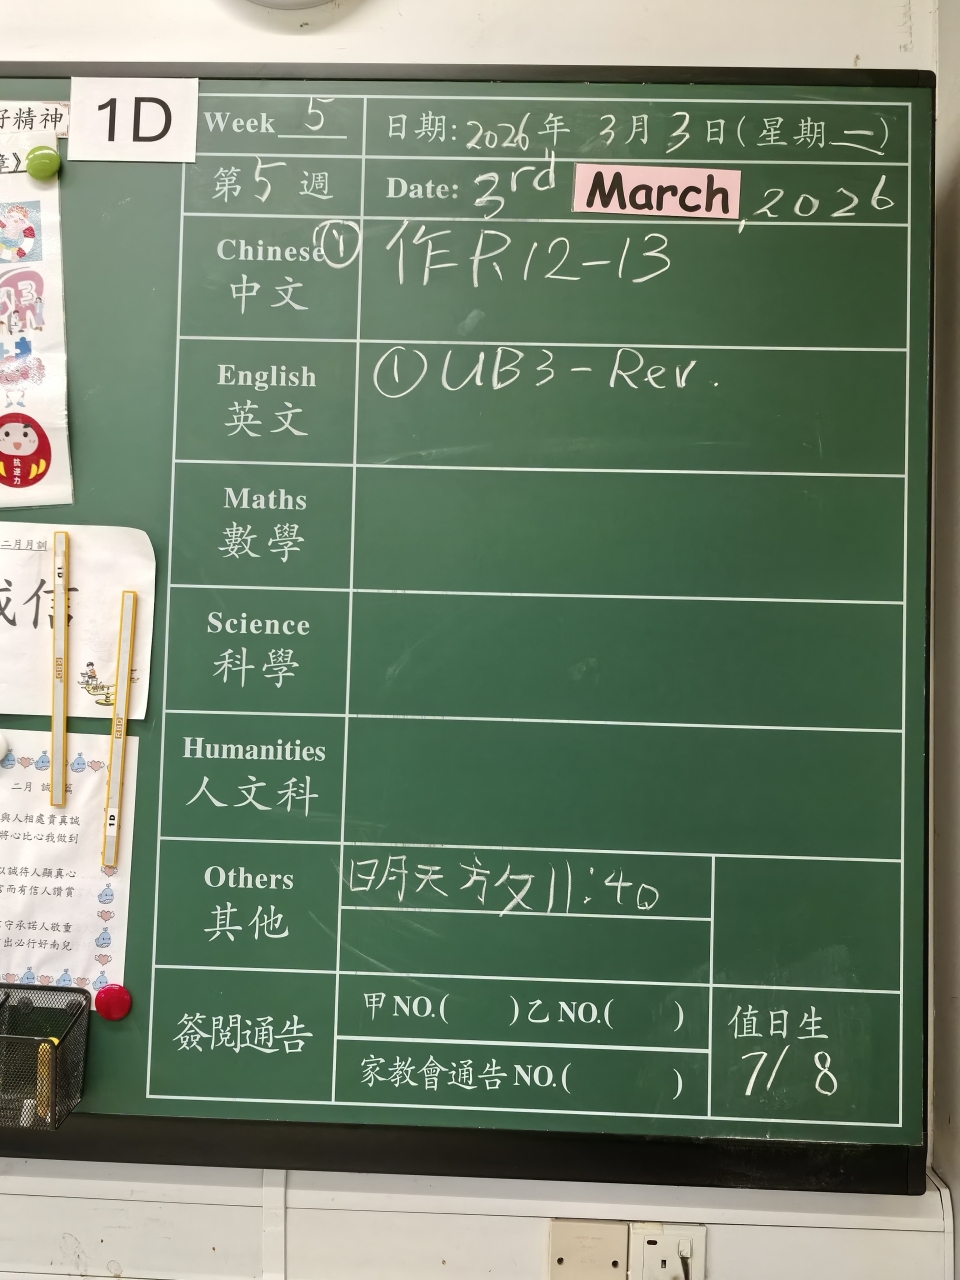 好精神
章》
1D
Week 5
日期: 2026年 3月 3日(星期二)
第 5 週
Date: 3rd March, 2026
Chinese ①
中文
作 P.12-13
English
英文
① UB3 - Rev.
Maths
數學
Science
科學
Humanities
人文科
Others
其他
明天 放 11:40
簽閱通告
甲 NO.( ) 乙 NO.( )
家教會通告 NO.( )
值日生
7/ 8
抗逆力
二月月訓
誠信
二月 誠 篇
與人相處貴真誠
將心比心我做到
以誠待人顯真心
言而有信人讚賞
守承諾人敬重
出必行好南兒
1D